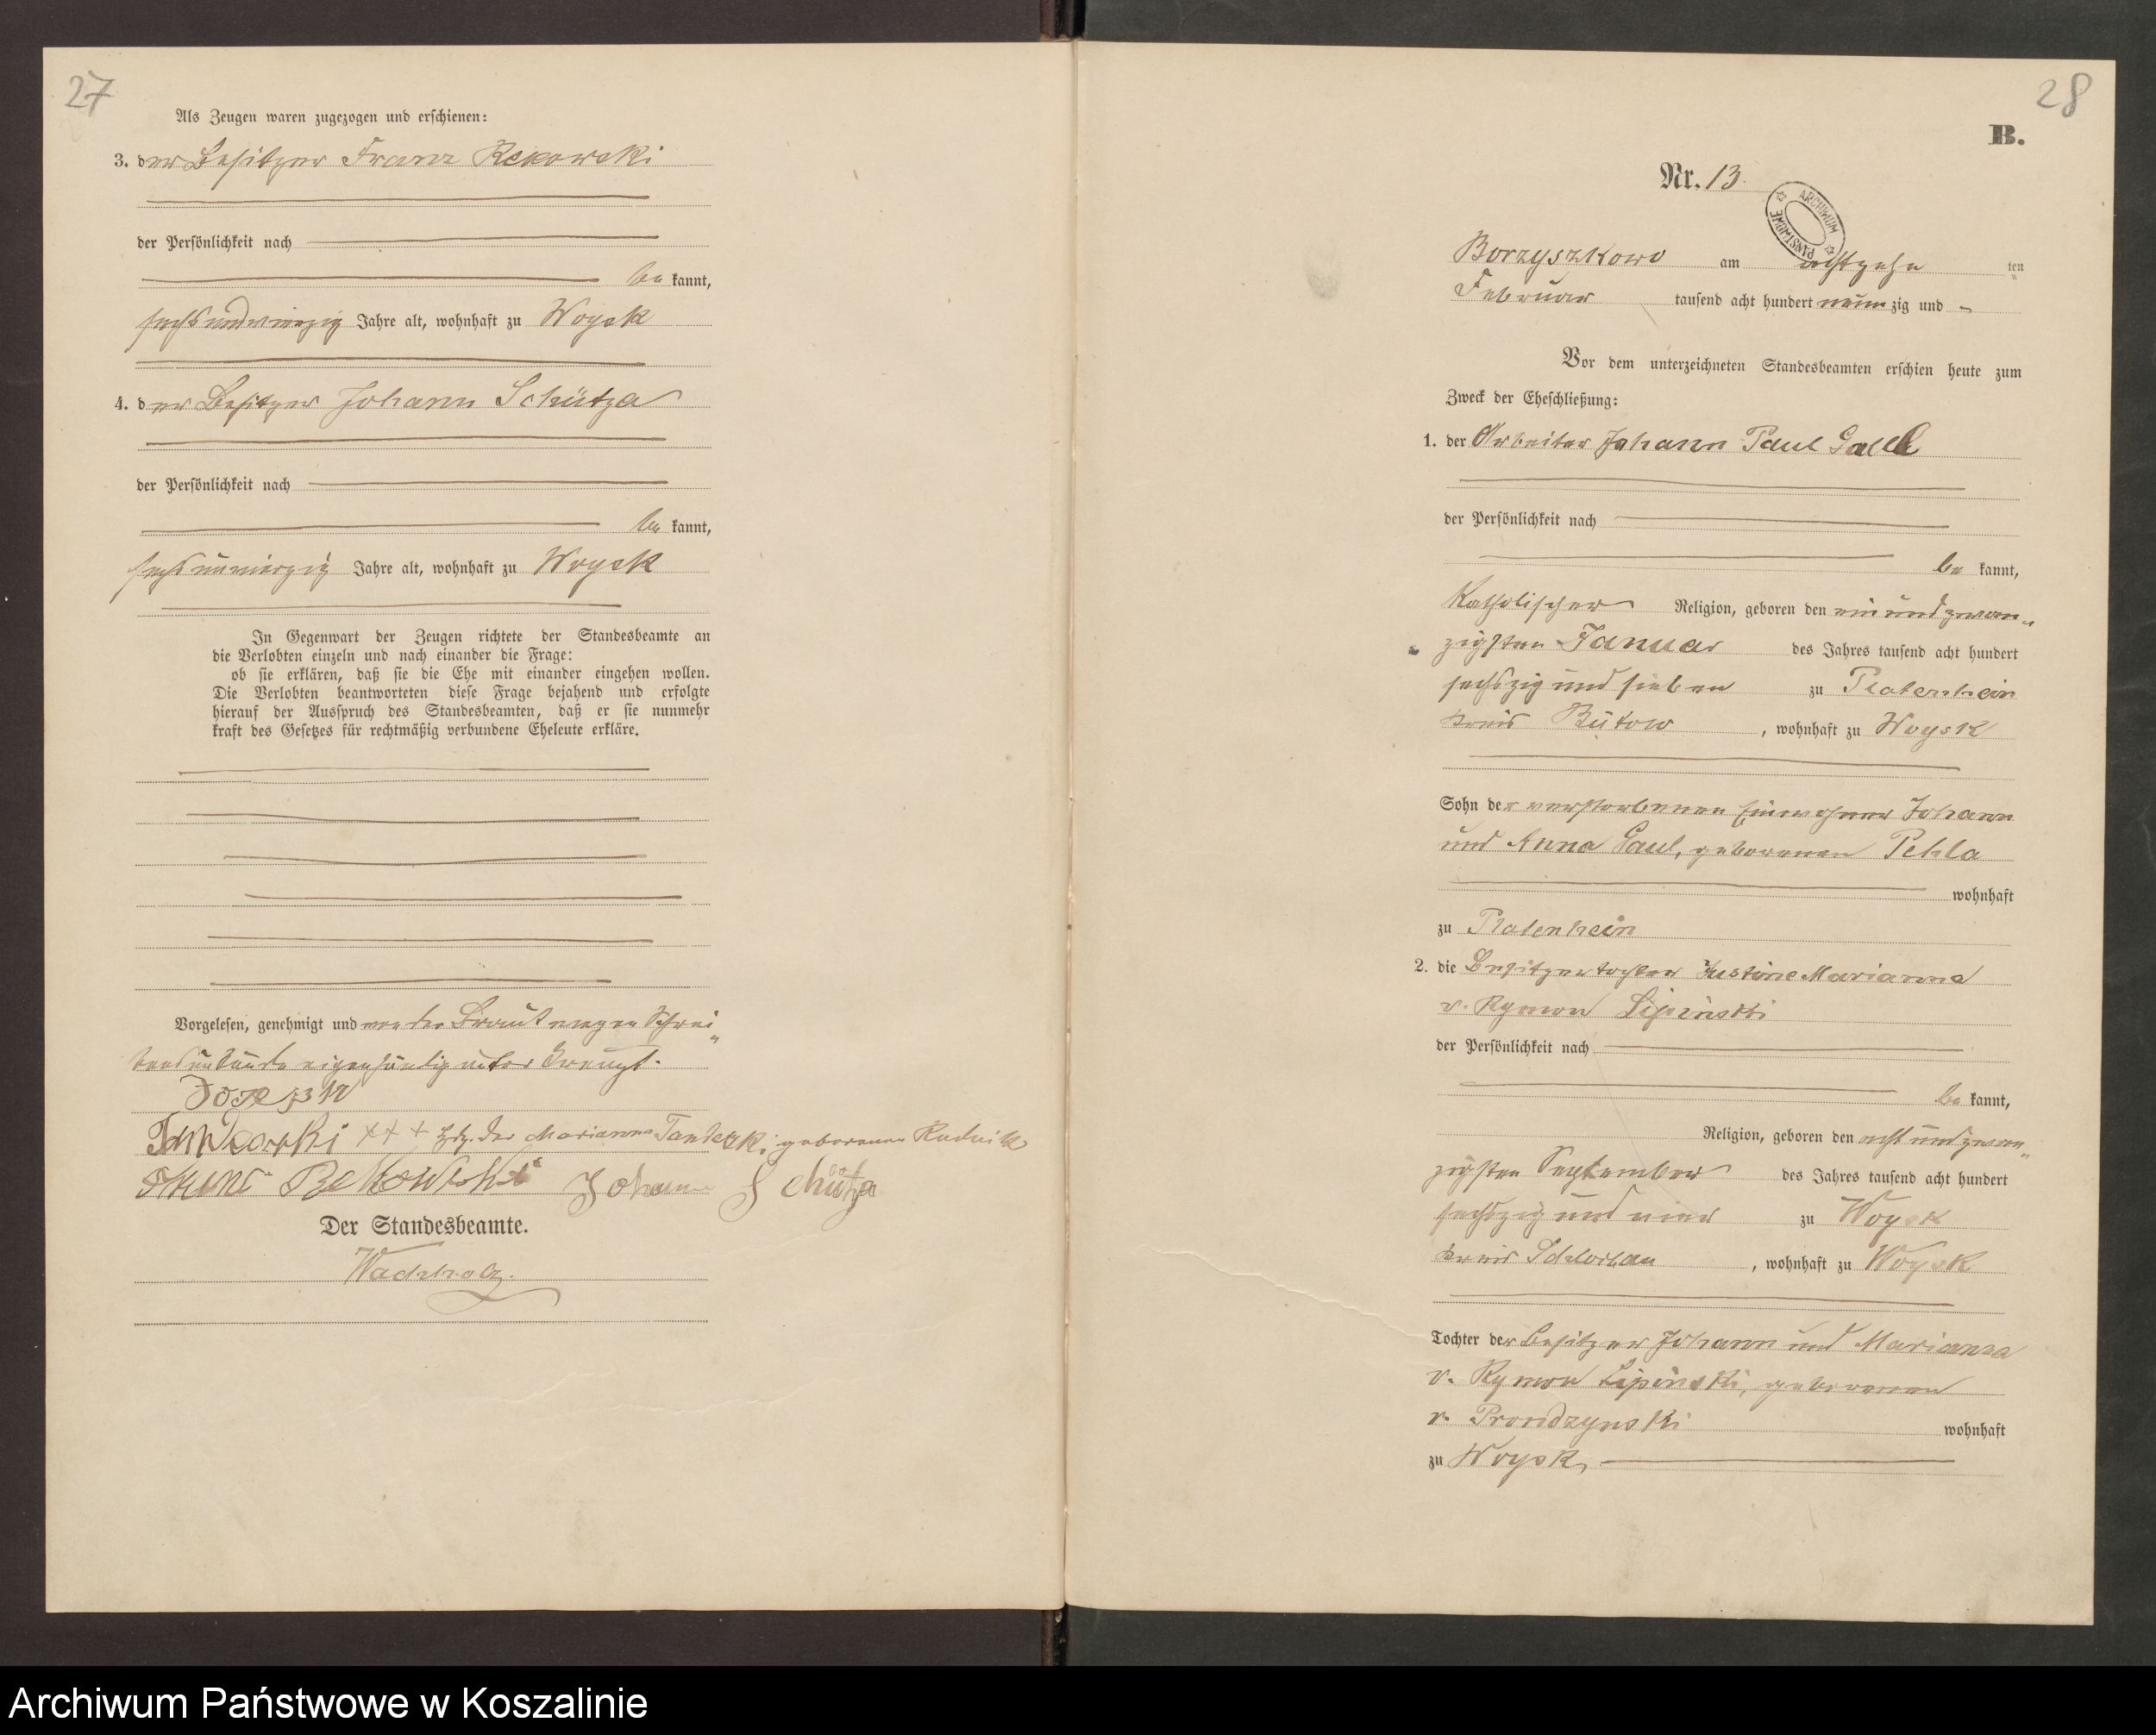 27
Als Zeugen waren zugezogen und erschienen:
3. der Besitzer Franz Rekowski
der Persönlichkeit nach
be kannt,
sechsundvierzig Jahre alt, wohnhaft zu Woysk
4. der Besitzer Johann Schütza
der Persönlichkeit nach
be kannt,
Jahre alt, wohnhaft zu Woysk
In Gegenwart der Zeugen richtete der Standesbeamte an
die Verlobten einzeln und nach einander die Frage:
ob sie erklären, daß sie die Ehe mit einander eingehen wollen.
Die Verlobten beantworteten diese Frage bejahend und erfolgte
hierauf der Ausspruch des Standesbeamten, daß er sie nunmehr
kraft des Gesetzes für rechtmäßig verbundene Eheleute erkläre.
Vorgelesen, genehmigt und von der Braut wegen Schrei„
bensunkunde eigenhändig unterkreuzt.
+++ Hdz. der Marianna geborenen Rudnik
Johann Schütza
Der Standesbeamte.
Wachholz.
28
B.
Nr. 13.
ARCHIWUM PAŃSTWOWE
Borzyszkowo am achtzehn ten
Februar tausend acht hundert neun zig und -
Vor dem unterzeichneten Standesbeamten erschien heute zum
Zweck der Eheschließung:
1. der Arbeiter Johann Paul
der Persönlichkeit nach
be kannt,
Katholischer Religion, geboren den ein und zwan„
zigsten Januar des Jahres tausend acht hundert
sechszig und sieben zu Platenhein
Kreis Bütow, wohnhaft zu Woysk
Sohn der verstorbenen Einwohner Johann
und Anna geborenen
wohnhaft
zu Platenhein
2. die Besitzertochter Justine Marianna
v. Rymon Lipinski
der Persönlichkeit nach
be kannt,
Religion, geboren den acht und zwan„
zigsten September des Jahres tausend acht hundert
sechszig und vier zu Woysk
Kreis Schlochau, wohnhaft zu Woysk
Tochter der Besitzer Johann und Marianna
v. Rymon Lipinski, geborenen
v. Prondzynski wohnhaft
zu Woysk,
Archiwum Państwowe w Koszalinie